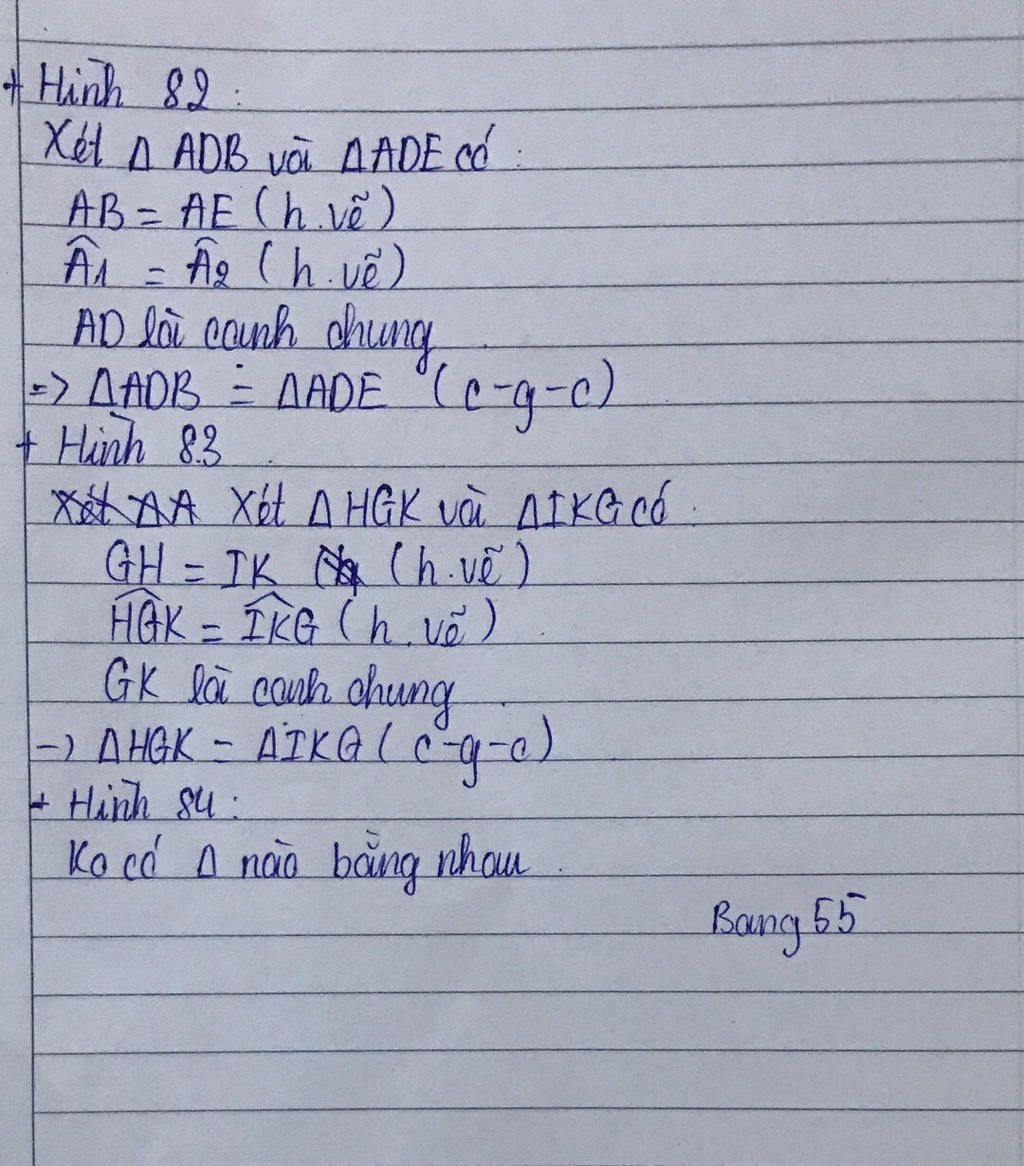 + Hình 82 :
Xét Δ ADB và ΔADE có :
AB = AE ( h.vẽ )
Â1 = Â2 ( h.vẽ )
AD là cạnh chung
=> ΔADB = ΔADE ( c-g-c )
+ Hình 83
Xét ΔA Xét Δ HGK và ΔIKG có :
GH = IK ( h.vẽ )
HĜK = IK̂G ( h.vẽ )
GK là cạnh chung
-> ΔHGK = ΔIKG ( c-g-c )
+ Hình 84 :
Ko có Δ nào bằng nhau .
Bang 55